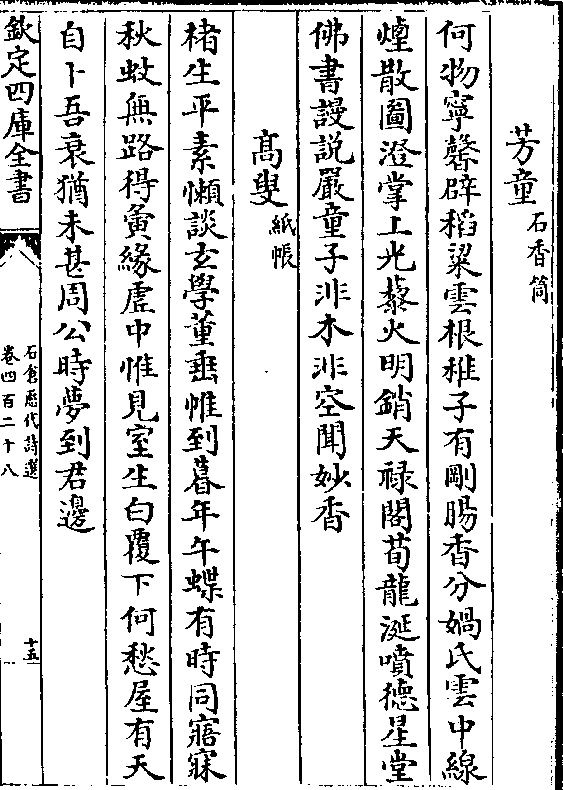 芳童石香筒
何物寧馨辟稻粱雲根稚子有剛腸香分媧氏雲中線
煙散圖澄掌上光藜火明銷天禄閣荀龍涎噴德星堂
佛書謾説嚴童子非木非空聞妙香
髙叟紙帳
楮生平素懶談玄學董垂帷到暮年午蝶有時同寤寐
秋蚊無路得夤緣虚中惟見室生白覆下何愁屋有天
自卜吾衰猶未甚周公時夢到君邊
欽定四庫全書
石倉歴代詩選
卷四百二十八
十五